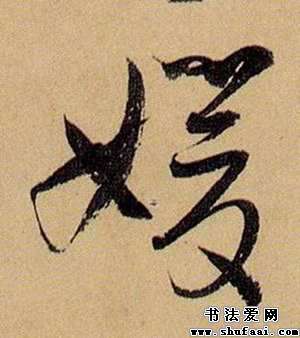 媛
书法爱网
www.shufaai.com